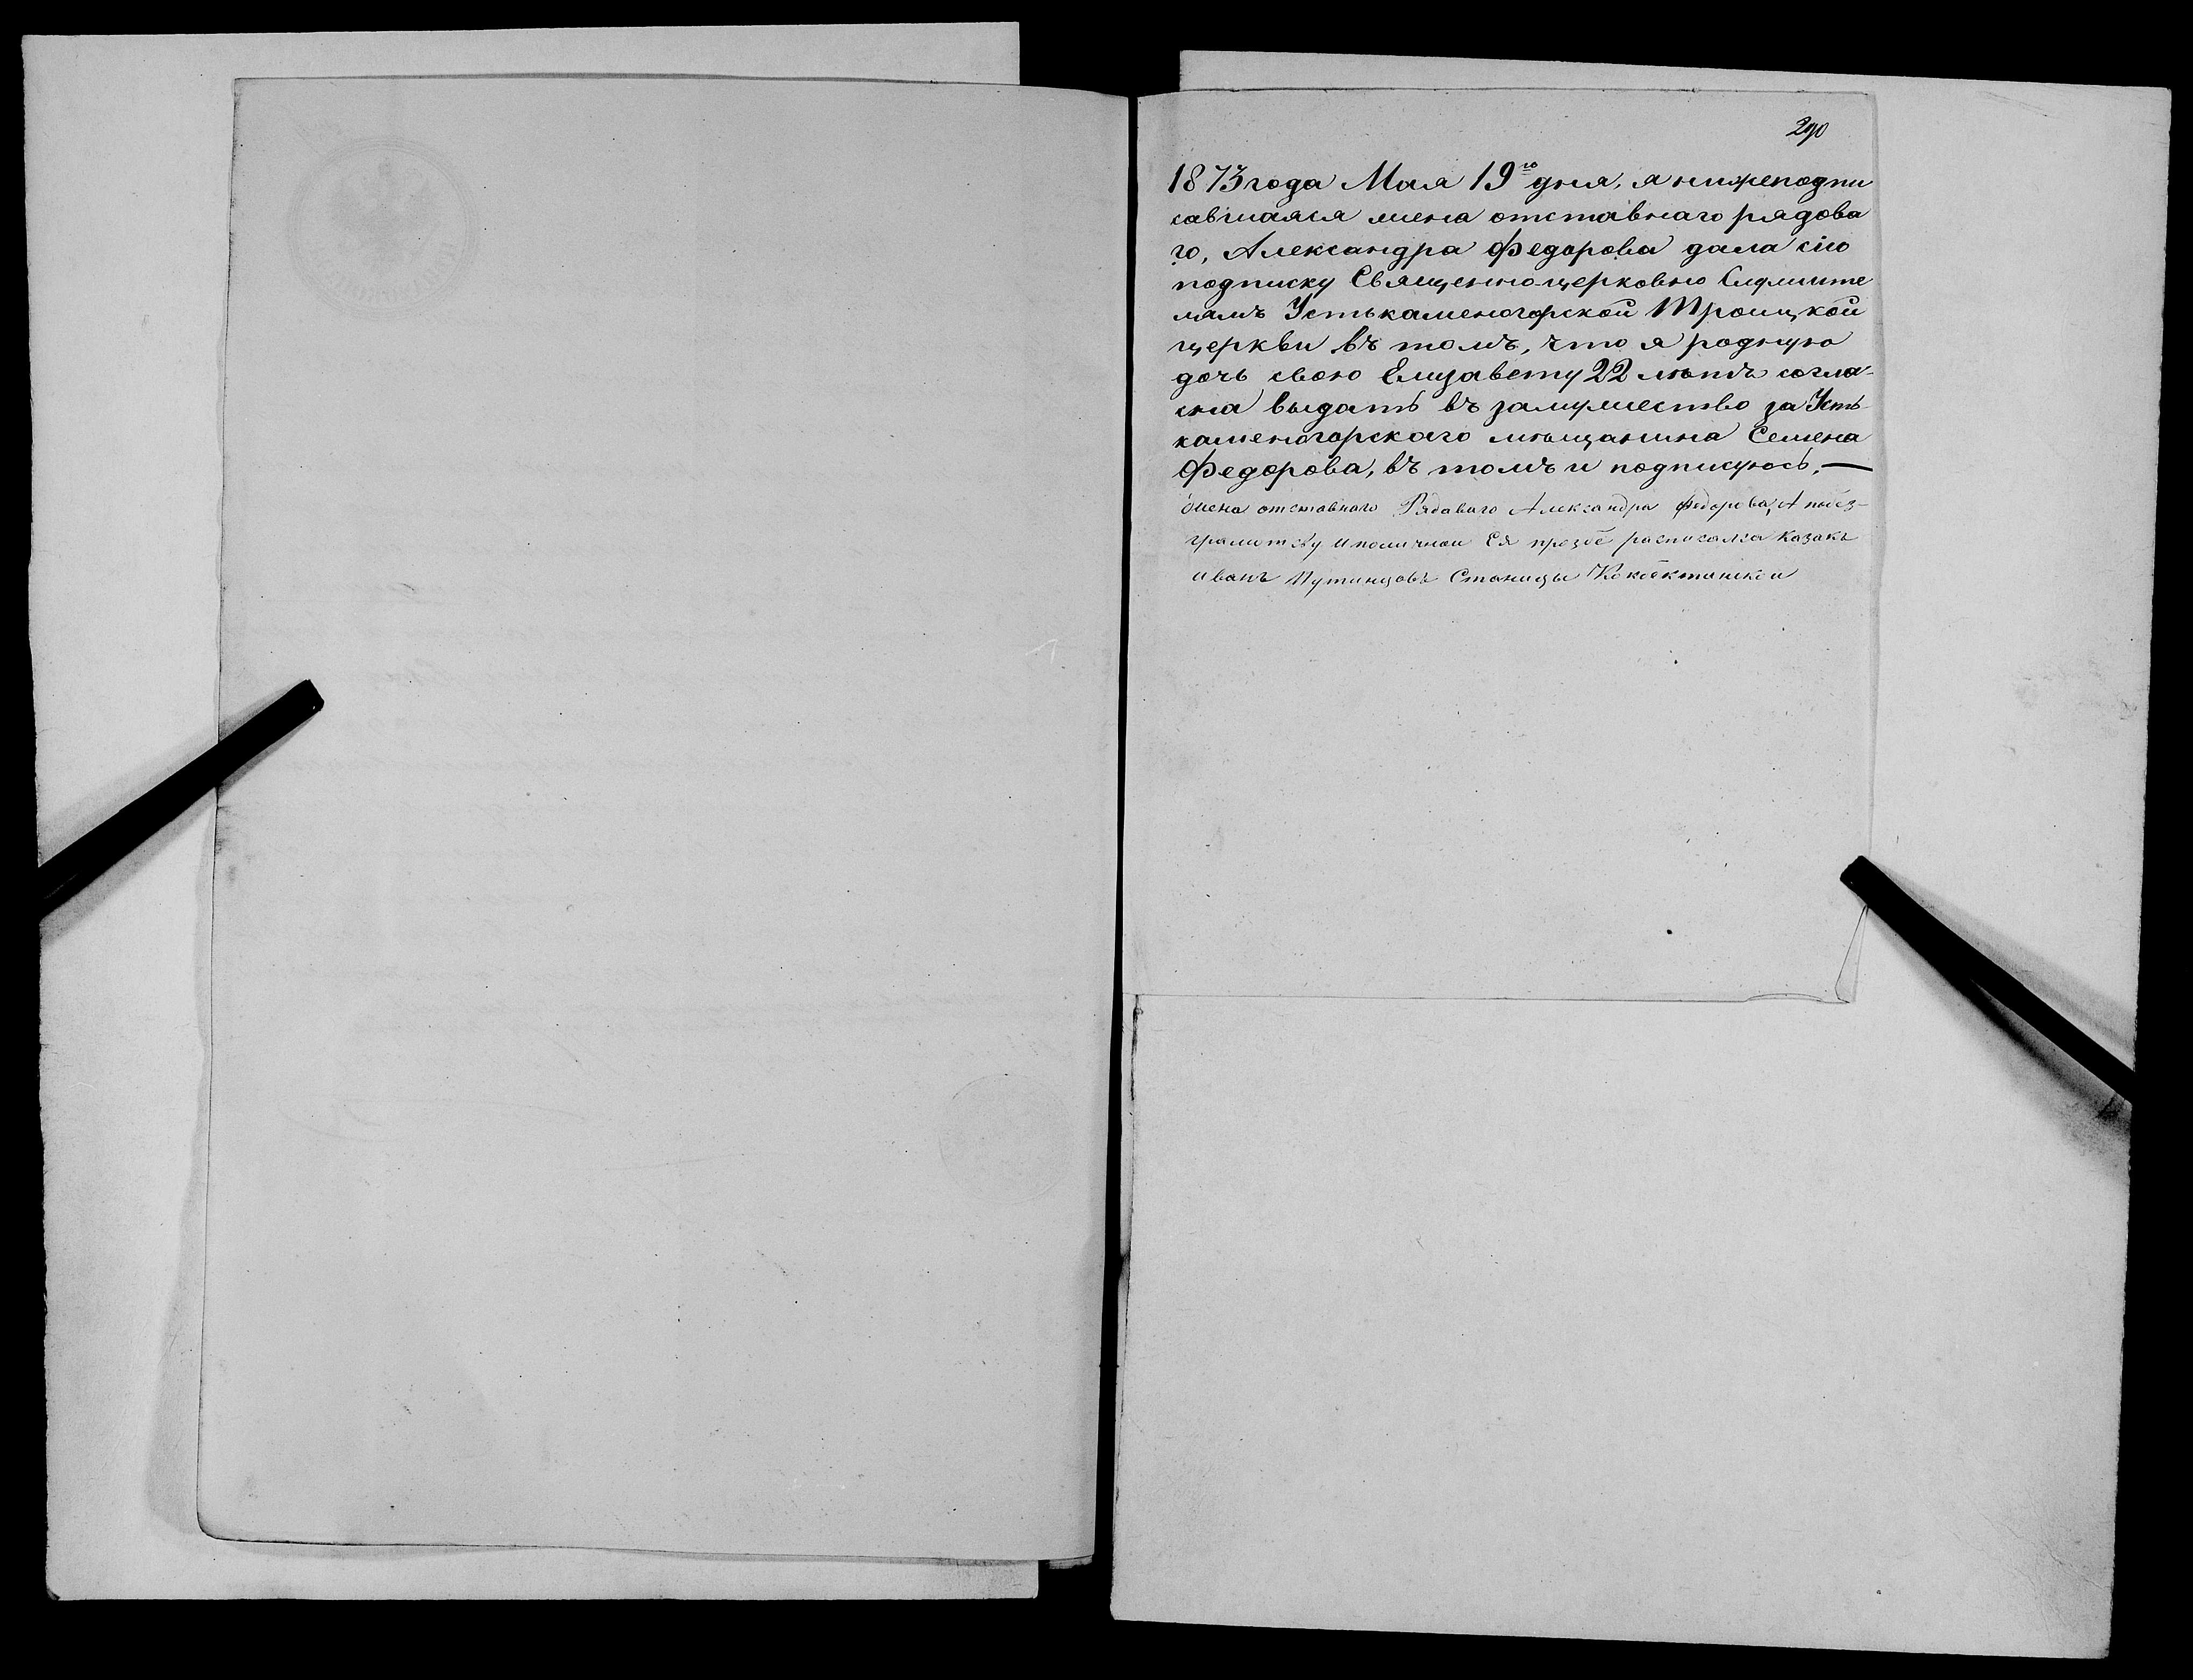 290
1873 года Мая 19го дня, я нижеподпи
савшаяся жена отставнаго рядова
го, Александра Федорова дала сію
подписку Священно-церковно Служите
лямъ Устькаменогорской Троицкой
церкви въ томъ, что я родную
дочь свою Елизавету 22 лѣтъ согла-
сна выдать въ замужество за Усть-
каменогорскаго мѣщанина Семена
Федорова, въ томъ и подписуюсь,—
жена отставнаго Рядаваго Александра Федорова, А поbез-
грамотству иполичнои Ея прозbе расписался казакъ
иванъ Путинцовъ Станицы Кокbектинскои